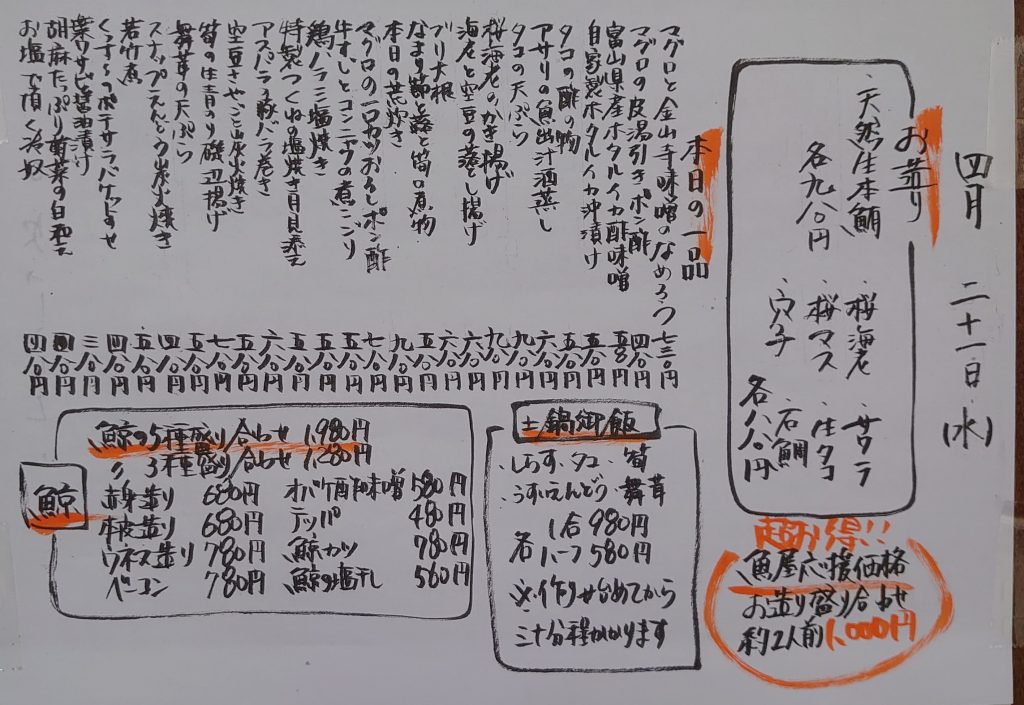 四月 二十一日(水)
お造り
・天然生本鮪
各九八〇円
・桜海老 ・サワラ
・桜マス ・生タコ
・穴子 ・石鯛
各八八〇円
超お得!!
魚屋応援価格
お造り盛り合わせ
約2人前1,000円
本日の一品
マグロと金山寺味噌のなめろう 七三〇円
マグロの皮湯引きポン酢 四八〇円
富山県産ホタルイカ酢味噌 五八〇円
自家製ホタルイカ沖漬け 五八〇円
タコの酢の物 五八〇円
アサリの魚出汁酒蒸し 六八〇円
タコの天ぷら 九八〇円
桜海老のかき揚げ 九八〇円
海老と空豆の蓮とし揚げ 六八〇円
ブリ大根 六八〇円
なまり節と蕗と筍の煮物 五八〇円
本日の荒炊き 九八〇円
マグロの一口カツおろしポン酢 七八〇円
牛すじとコンニャクの煮こごり 五八〇円
鶏ハラミ塩焼き 五八〇円
特製つくねの塩焼き月見添え 五八〇円
アスパラ豚バラ巻き 六八〇円
空豆さやごと炭火焼き 五八〇円
筍の生青のり磯辺揚げ 七八〇円
舞茸の天ぷら 五八〇円
スナップえんどう炭火焼き 四八〇円
若竹煮 五八〇円
くんずのポテサラバゲットのせ 四八〇円
葉ワサビ醤油漬け 三八〇円
胡麻たっぷり菊菜の白和え 四八〇円
お塩で頂く冷奴 四八〇円
土鍋御飯
・しらす・タコ・筍
・うすいえんどう・舞茸
各 1合 980円
ハーフ 580円
※作り始めてから
三十分程かかります
鯨
鯨の5種盛り合わせ 1,980円
〃 3種盛り合わせ 1,280円
赤身造り 680円 オバケ酢味噌 580円
本皮造り 680円 テッパ 480円
ウネス造り 780円 鯨カツ 780円
ベーコン 780円 鯨の塩干し 560円